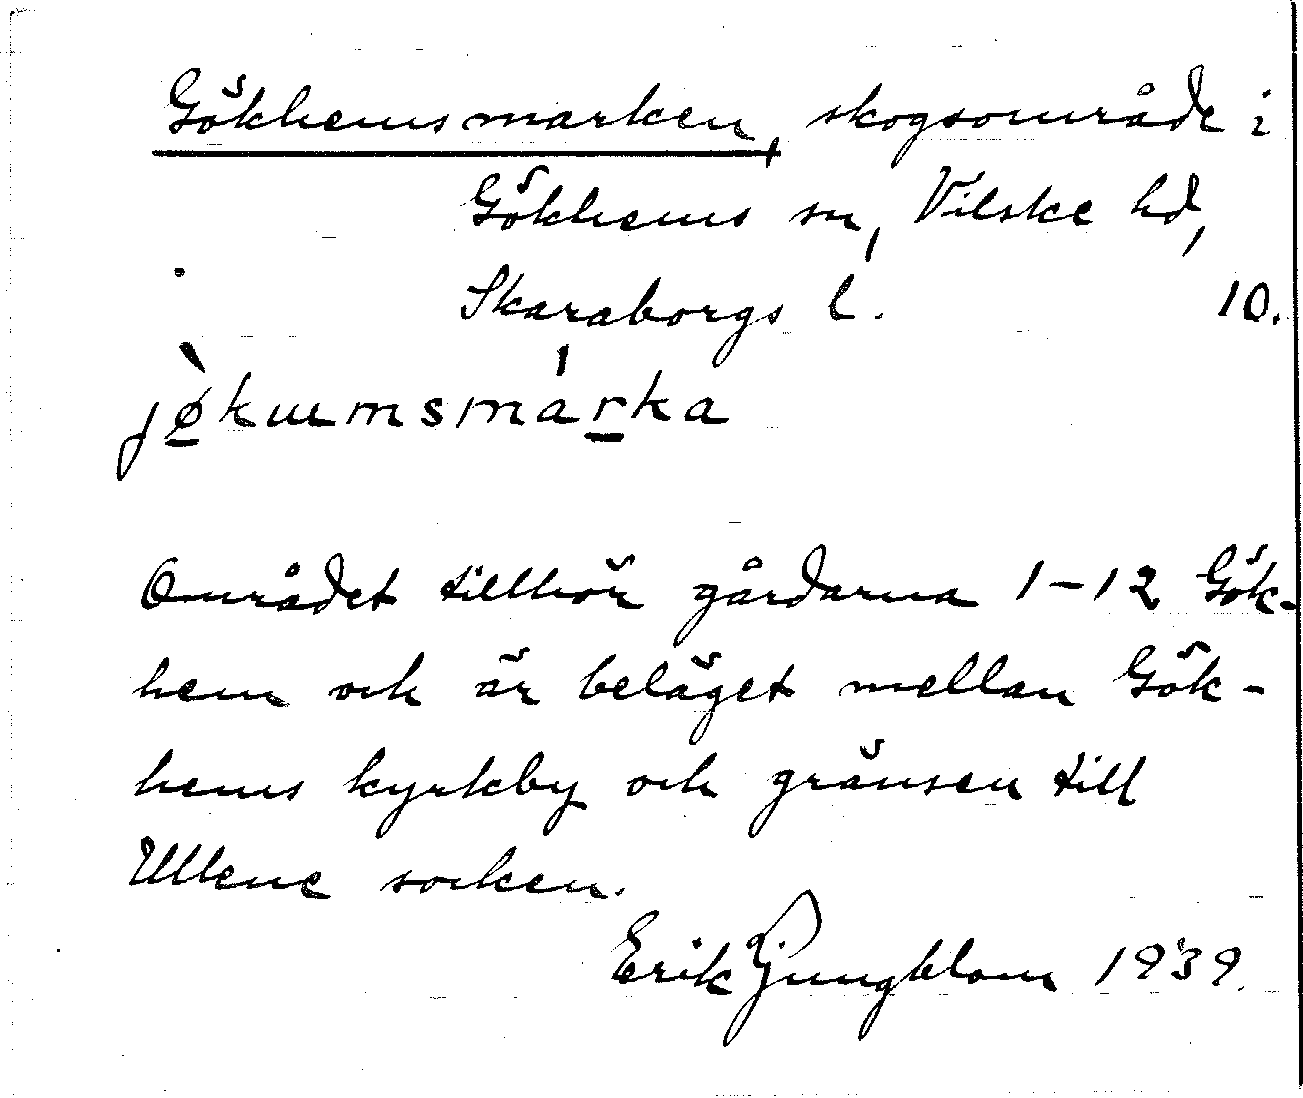 Gökhemsmarken, skogsområde i
Gökhems sn, Vilske hd,
Skaraborgs l. 10.
jø̀kɯmsmárka
Området tillhör gårdarna 1-12 Gök-
hem och är beläget mellan Gök-
hems kyrkby och gränsen till
Ullene socken.
Erik Ljungblom 1939.